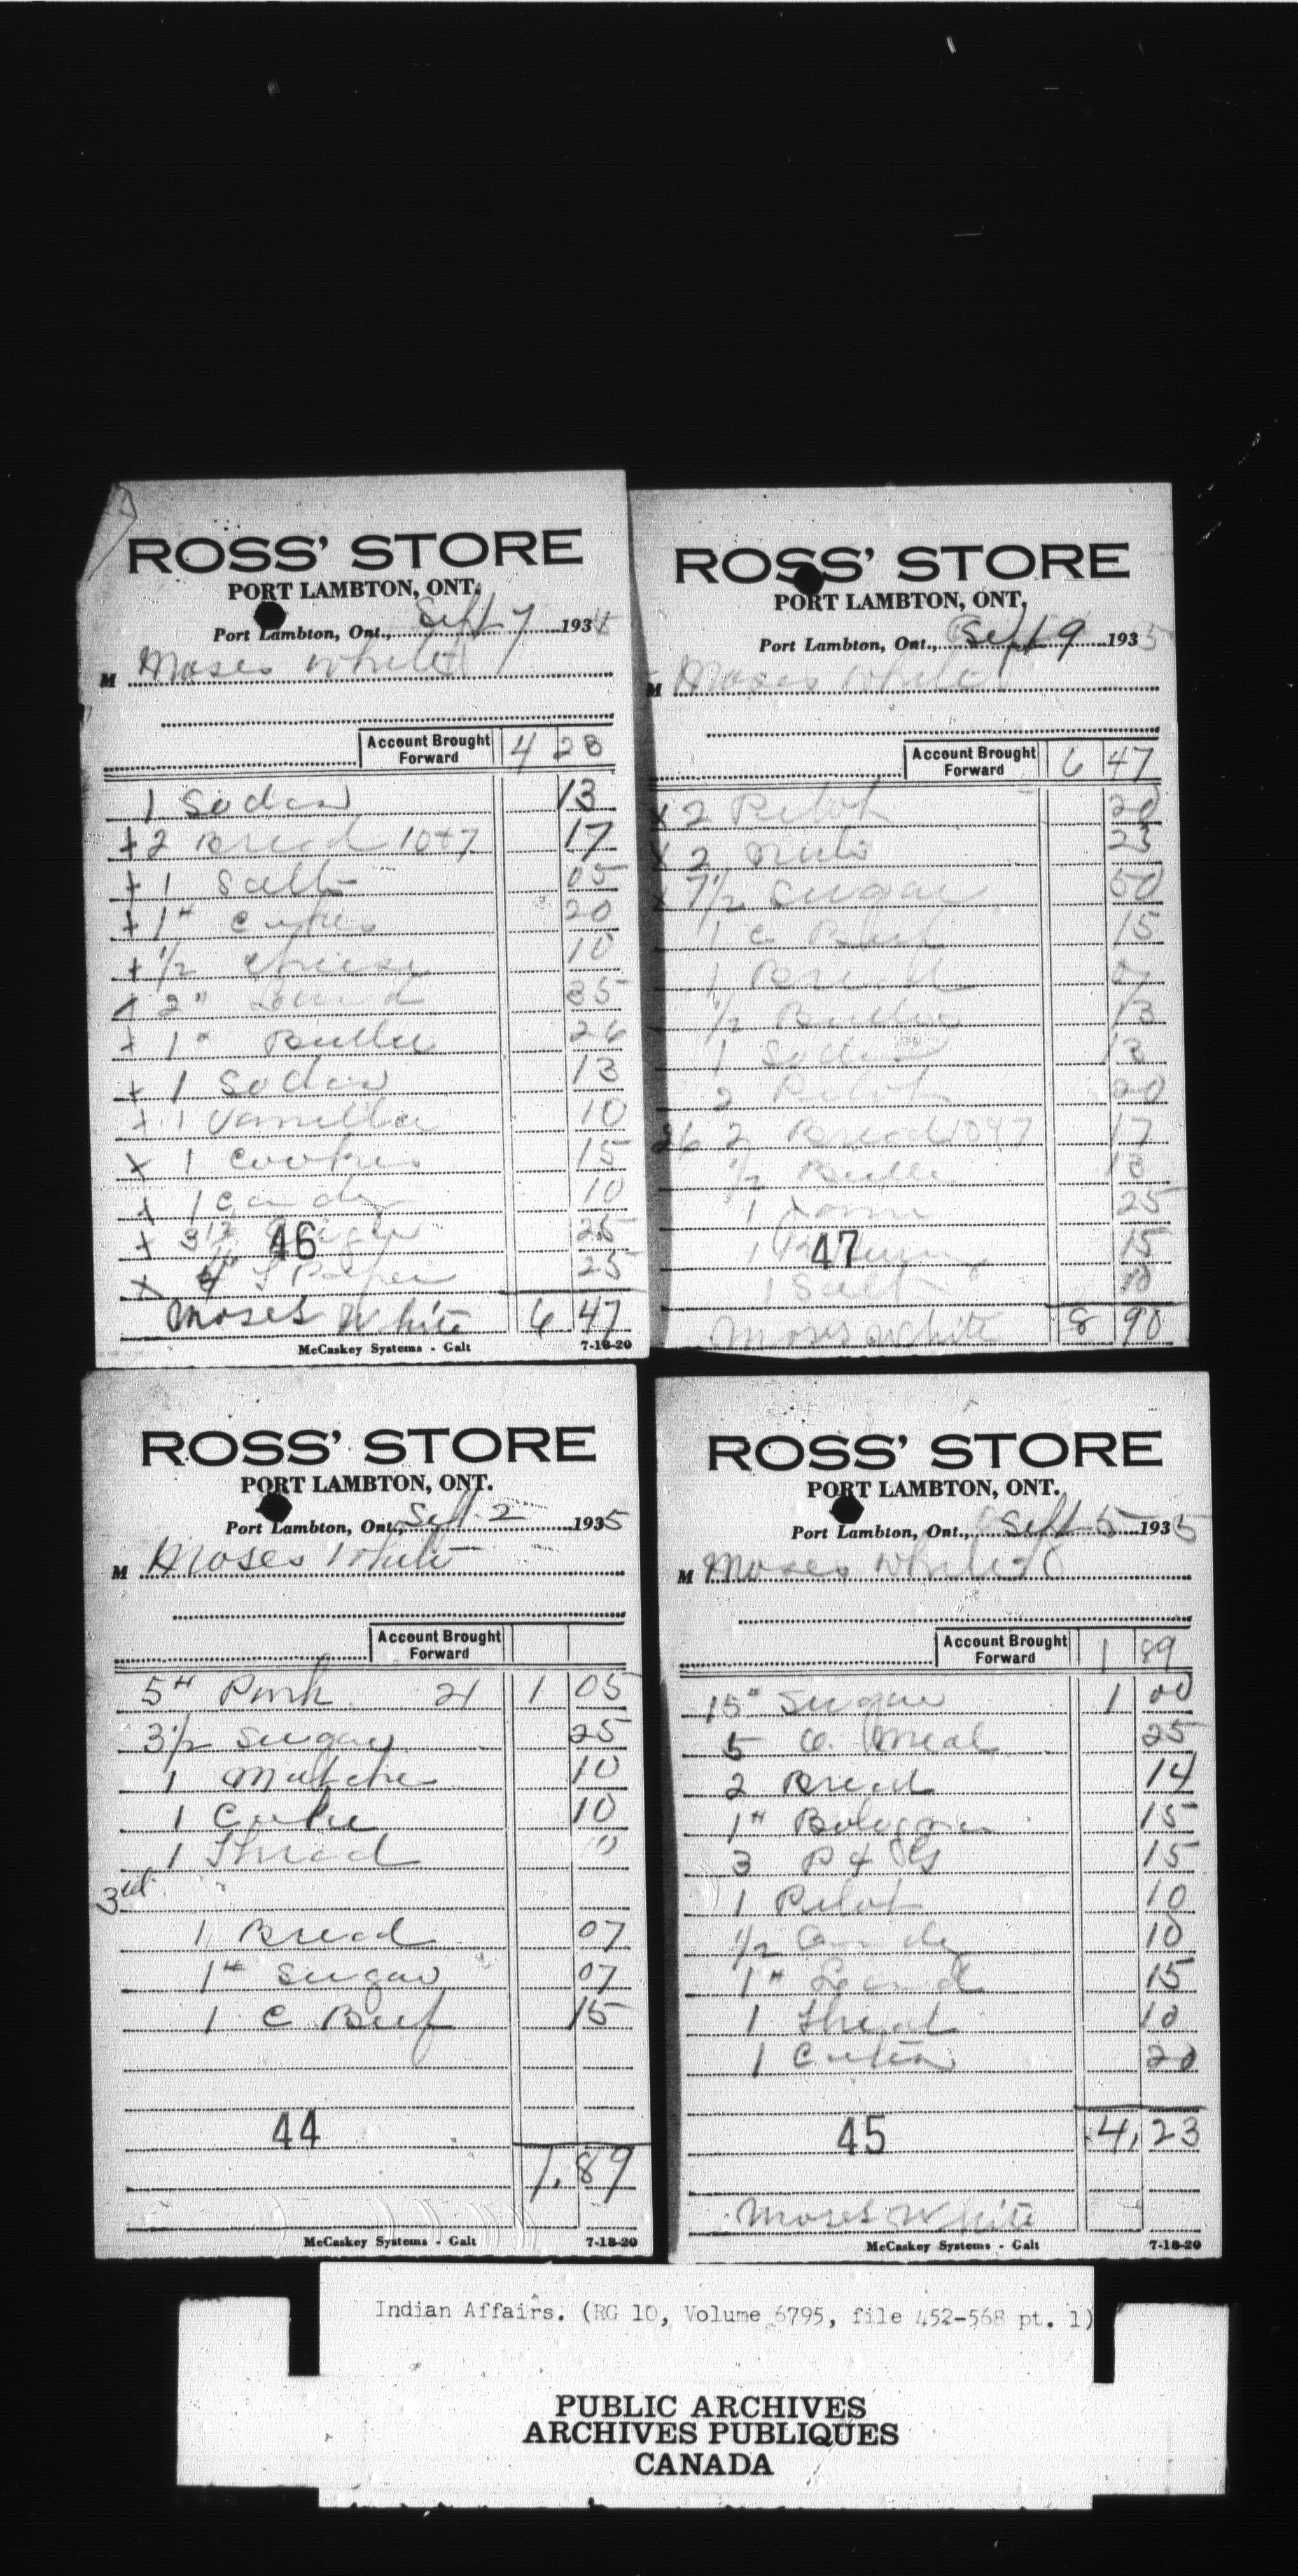 ROSS' STORE
PORT LAMBTON, ONT.
Port Lambton, Ont., Sept 7 193
M Moses White
Account Brought Forward 4 23
1 Sodas 13
+ 2 Bread 10+7 17
+ 1 Salt 05
+ 1# 20
+ 1/2 Cheese 10
2" Lard 35
+ 1" Butter 26
+ 1 Sodas 13
+ 1 Vanilla 10
x 1 Cookies 15
+ 1 Candy 10
+ 3 1/2 Sugar 25
x 4 T Paper 25
46
Moses White 6 47
McCaskey Systems - Galt 7-18-20
ROSS' STORE
PORT LAMBTON, ONT.
Port Lambton, Ont., Sept 9 1935
M Moses White
Account Brought Forward 6 47
x 2 Pilot 20
x 2 25
x 7 1/2 Sugar 50
1 C Beef 15
1 Bread 07
1/2 Butter 13
1 13
2 Pilot 20
2 Bread 10+7 17
1/2 Butter 13
1 25
1 15
1 Salt 10
47
Moses White 8 90
ROSS' STORE
PORT LAMBTON, ONT.
Port Lambton, Ont., Sept 2 1935
M Moses White
Account Brought Forward
5# Pork 21 1 05
3 1/2 Sugar 25
1 Matches 10
1 10
1 Thread "
3rd
1 Bread 07
1# Sugar 07
1 C Beef 15
44
1.89
McCaskey Systems - Galt 7-18-20
ROSS' STORE
PORT LAMBTON, ONT.
Port Lambton, Ont., Sept 5 1935
M Moses White
Account Brought Forward 1 89
15# Sugar 1 00
5 O. Meal 25
2 Bread 14
1# Bologna 15
3 P & G 15
1 Pilot 10
1/2 Candy 10
1# Lard 15
1 Thread 10
1 20
45
4.23
Moses White
McCaskey Systems - Galt 7-18-20
Indian Affairs. (RG 10, Volume 6795, file 452-568 pt. 1)
PUBLIC ARCHIVES
ARCHIVES PUBLIQUES
CANADA